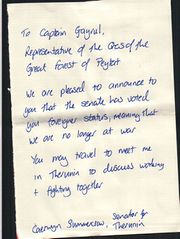 To Captain Gayrul,
Representative of the Cross of the
Great Forest of Peykot
We are pleased to announce to
you that the senate has voted
you foreigner status, meaning that
we are no longer at war
You may travel to meet me
in Therunin to discuss working
+ fighting together
Caerwyn Summercrow, Senator for
Therunin